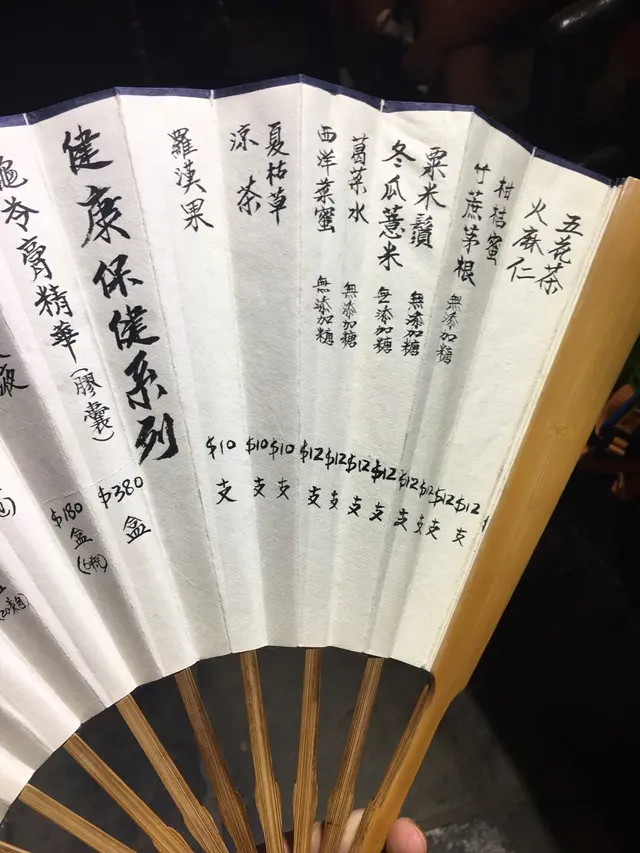 五花茶 $12 支
火麻仁 $12 支
柑桔蜜 $12 支
竹蔗茅根 無添加糖 $12 支
粟米鬚 無添加糖 $12 支
冬瓜薏米 無添加糖 $12 支
葛菜水 無添加糖 $12 支
西洋菜蜜 無添加糖 $12 支
夏枯草 $10 支
涼茶 $10 支
羅漢果 $10 支
健康保健系列
龜苓膏精華(膠囊) $380 盒
液 $180 盒